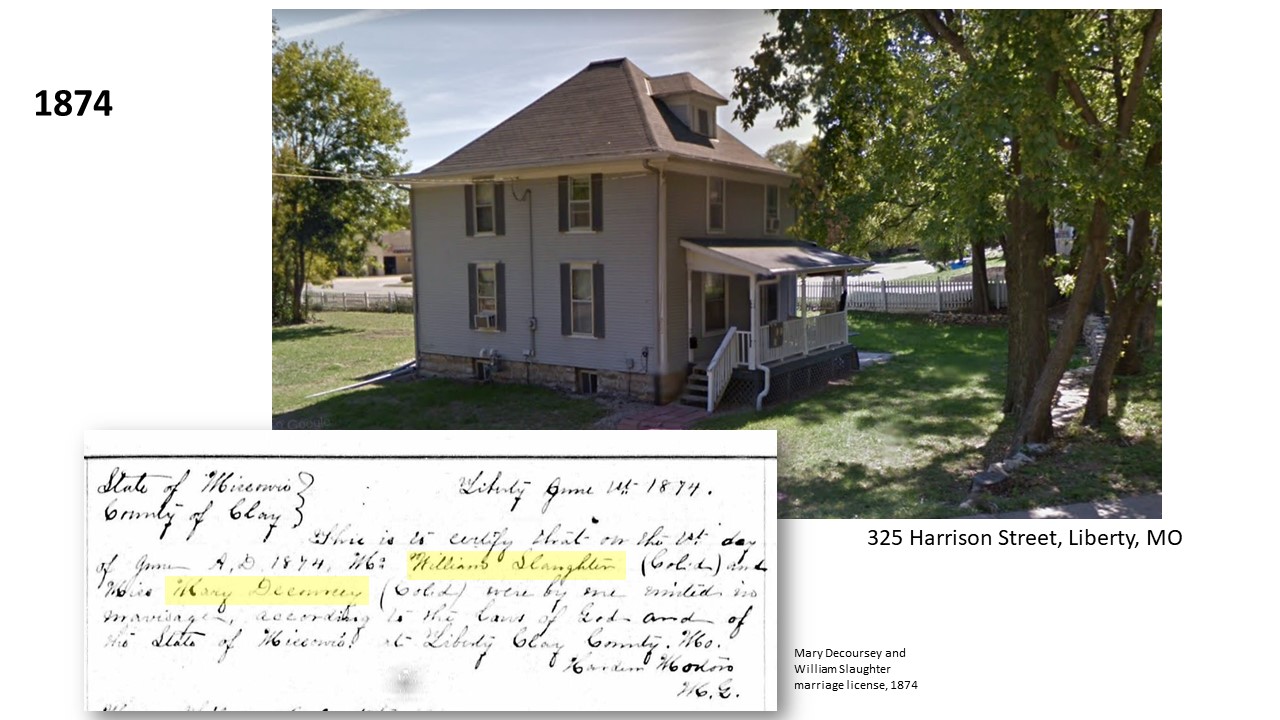 1874
325 Harrison Street, Liberty, MO
State of Missouri }
County of Clay }
Liberty June 1st 1874.
This is to certify that on the 1st day
of June A.D. 1874, Mr William Slaughter (Colrd) and
Miss Mary Decoursey (Colrd) were by me united in
marriage, according to the Laws of God and of
the State of Missouri. at Liberty Clay County. Mo.
M.G.
Mary Decoursey and
William Slaughter
marriage license, 1874